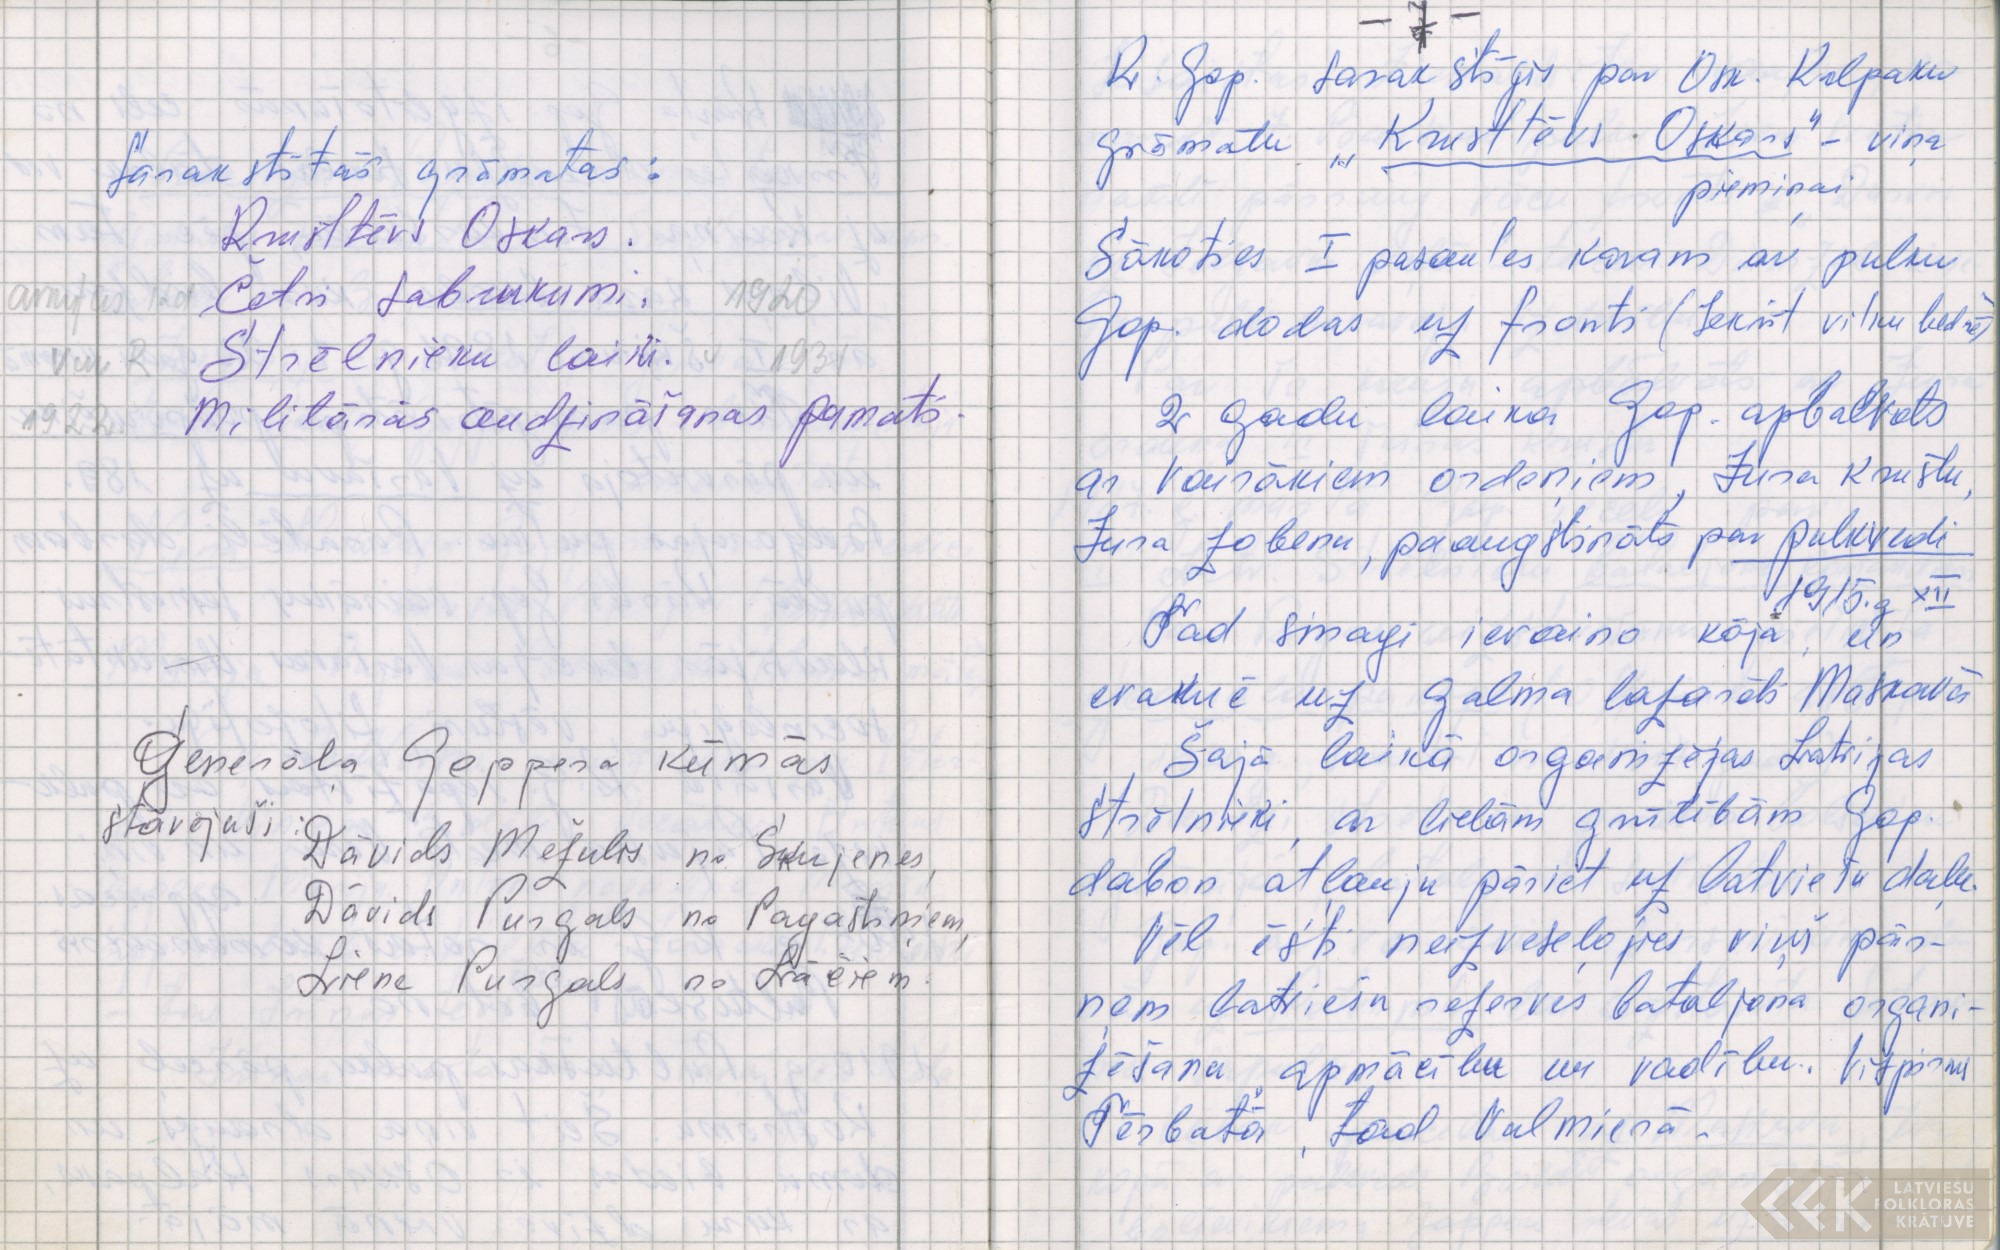 Sarakstītās grāmatas:
Krusttēvs Oskars.
Četri sabrukumi. 1920
Strēlnieku laiki. 1931
1922. Militārās audzināšanas pamati.
Ģenerāļa Goppera kūmās
stāvējuši:
Dāvids Mežulis no Skujenes,
Dāvids Purgals no Pagastiņiem,
Liene Purgals no Lāčiem.
- 7 -
K. Gop. sarakstījis par Osk. Kalpaku
grāmatu „Krusttēvs Oskars" - viņa
piemiņai
Sākoties I pasaules karam ar pulku
Gop. dodas uz fronti (
2 gadu laikā Gop. apbalvots
ar vairākiem ordeņiem, Jura krustu,
Jura zobenu, paaugstināts par pulkvedi
1915.g XII
Tad smagi ievaino kājā, un
evakuē uz galma lazareti Maskavā
Šajā laikā organizējas Latvijas
strēlnieki, ar lielām grūtībām Gop.
dabon atļauju pāriet uz latviešu daļu.
Vēl īsti neizveseļojies viņš pār-
ņem latviešu rezerves bataljona organi-
zēšanu, apmācību un vadību. Vispirms
Tērbatā, tad Valmierā.
LATVIEŠU
FOLKLORAS
KRĀTUVE